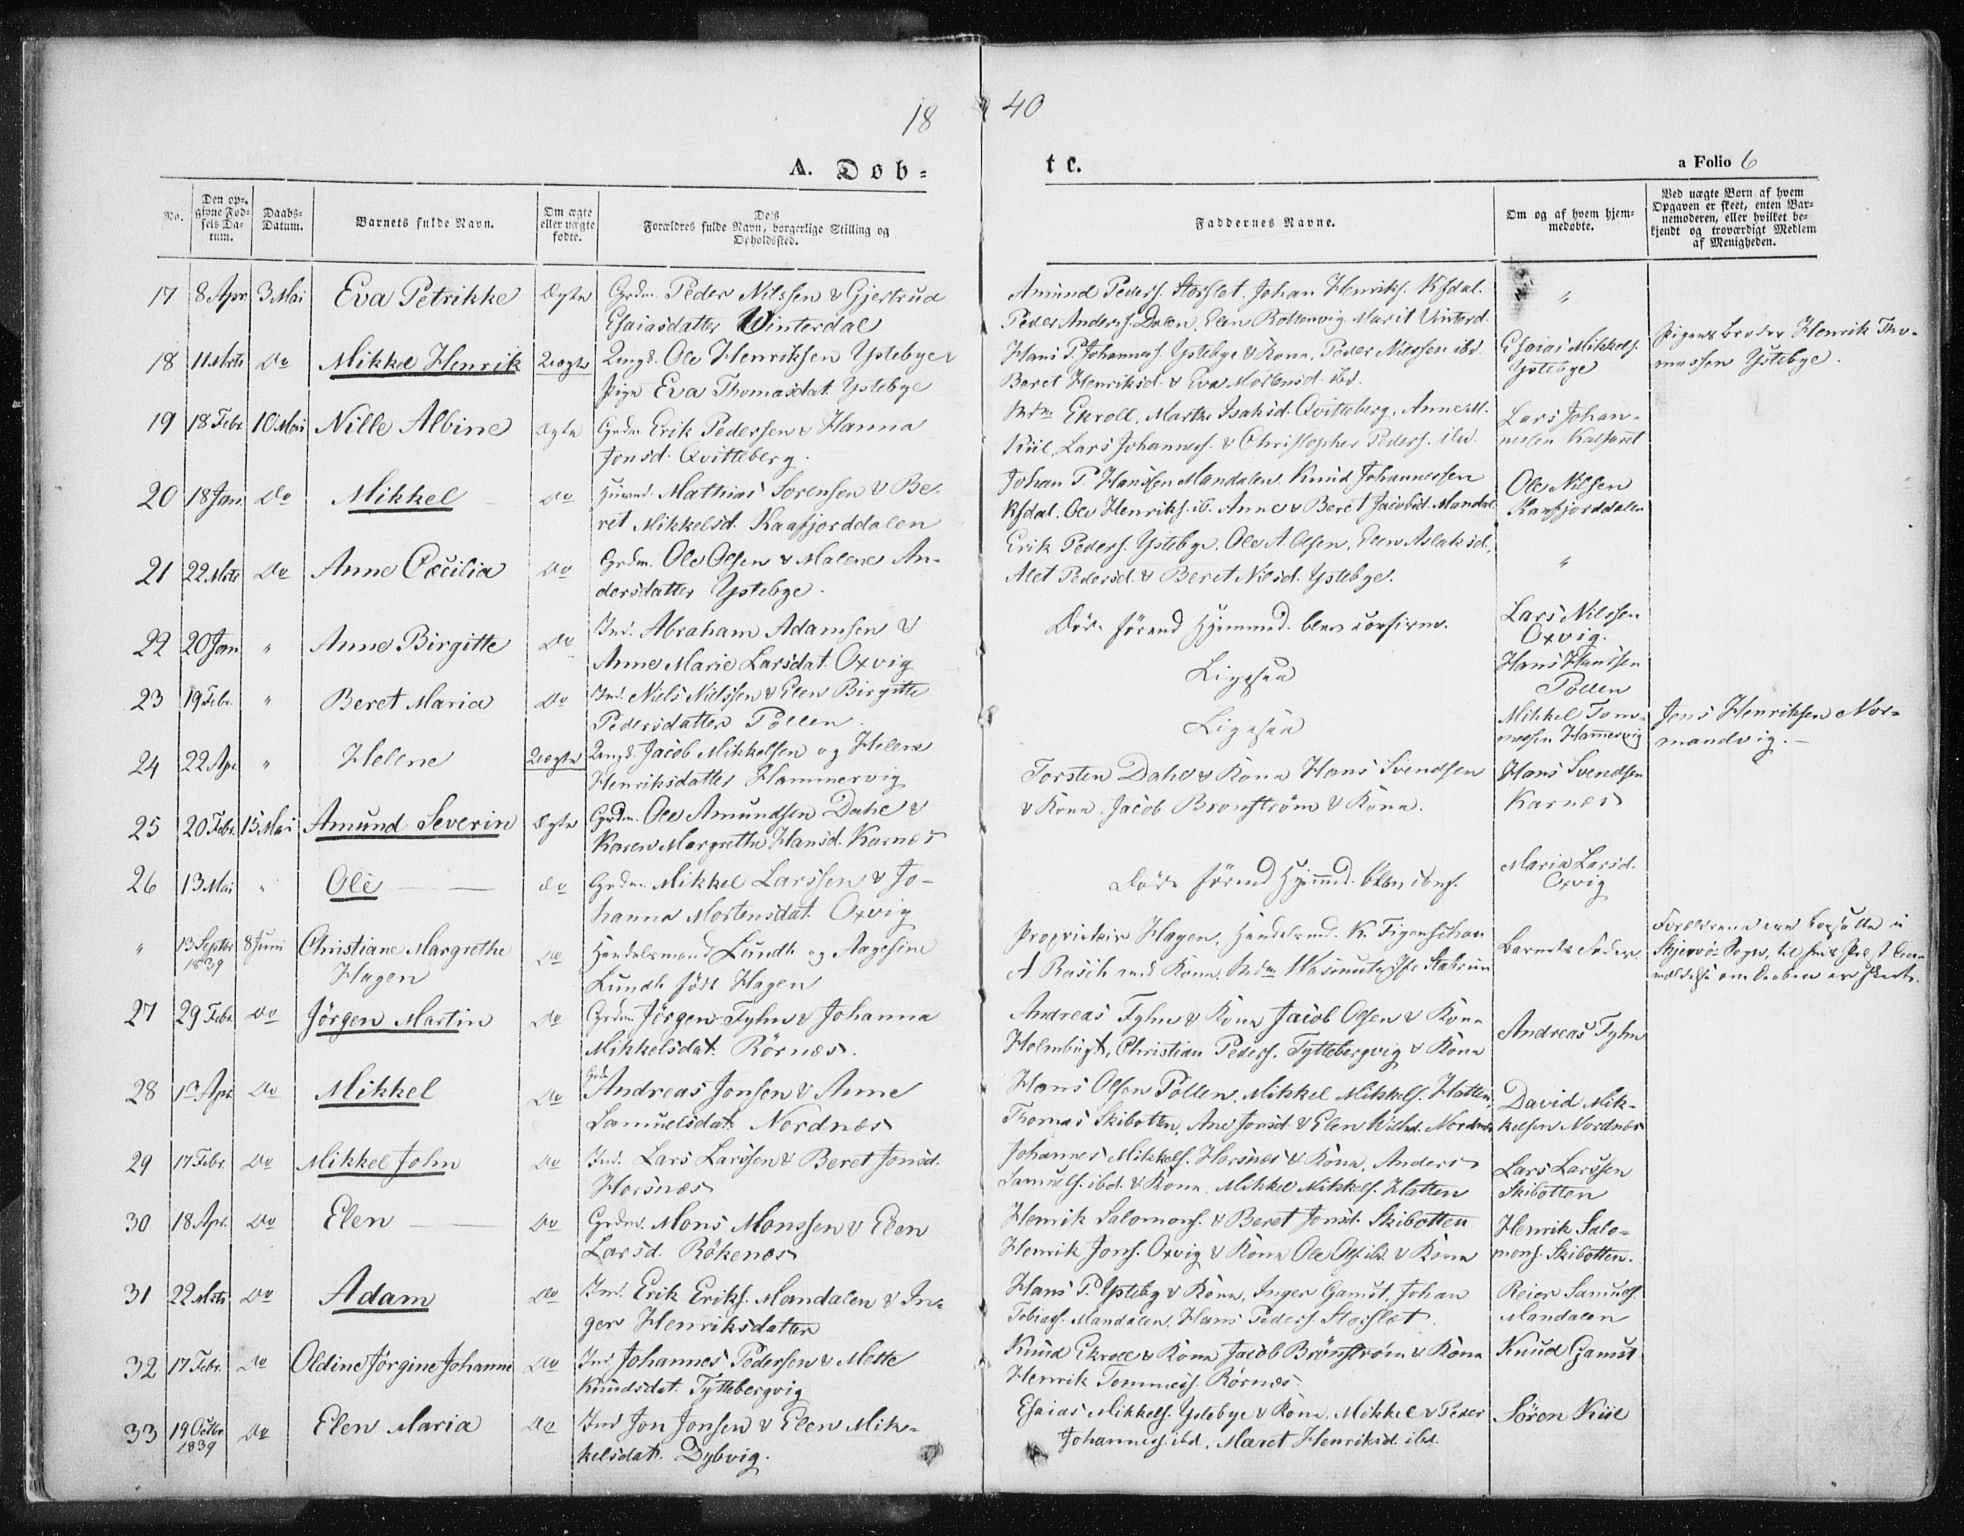 18 40
A. Döb= te. a Folio 6
No.
Den op-
givne Föd-
sels Da-
tum.
Daabs-
Datum.
Barnets fulde Navn.
Om ægte
eller uægte
fødte.
Dets
Forældres fulde Navn, borgerlige Stilling og
Opholdssted.
Faddernes Navne.
Om og af hvem hjem-
medøbte.
Ved uægte Børn af hvem
Opgaven er skeet, enten Bar-
nemoderen, eller hvilket be-
kjendt og troværdigt Medlem
af Menigheden.
17 8 Apr 3 Mai Eva Petrikke Ægte Grdm. Peder Nilssen & Gjertrud
Esaiasdatter Vinterdal
Amund Peders. Storslet. Johan Henriks. Kfdal.
Peder Anders. Dalen, Elen Rottenvig. Marit Vinterd. "
18 11 Mrts Do Mikkel Henrik Uægte Ungk. Ole Henriksen Ystebye &
Pige Eva Thomasdat. Ystebye
Hans P. Johanness. Ystebye & Kona, Peder Nielssen ibd.
Beret Henriksd. & Eva Mortensd. ibd.
Esaias Mikkels.
Ystebye
Pigens Broder Henrik Tho-
massen Ystebye.
19 18 Febr 10 Mai Nille Albine Ægte Grdm. Erik Pedersen & Hanna
Jonsd. Qvitteberg.
Mdm Ekroll, Marthe Isaksd. Qvitteberg, Anne M.
Kiil, Lars Johanness. & Christopher Peders. ibd.
Lars Johan-
nesen
20 18 Jan Do Mikkel Do Huusmd. Mathias Sörensen & Be-
ret Mikkelsd. Kaafjorddalen
Johan P. Hanssen Mandalen. Knud Johannessen
Kfdal. Ole Henriks. ib. Anne & Beret Jacobsd. Mandal.
Ole Nilsen
Kaafjorddalen
21 22 Mrts Do Anne Cæcilia Do Grdm. Ole Olsen & Malene An-
dersdatter Ystebye.
Erik Peders. Ystebye. Ole A. Olsen, Elen Aslaksd.
Alet Pedersd. & Beret Nilsd. Ystebye. "
22 20 Jan " Anne Birgitte Do Ind. Abraham Adamsen &
Anne Marie Larsdat. Oxvig
Döde förend Hjemmed. blev confirm.
Lars Nilssen
Oxvig.
23 19 Febr. " Beret Maria Do Ind. Niels Nielssen & Elen Birgitte
Pedersdatter Pollen.
Ligesaa
Hans Hanssen
Pollen
24 22 Apr " Helene Uægte Ungk. Jacob Mikkelsen og Helene
Henriksdatter Hammervig
Ligesaa
Mikkel Tom-
mesen Hammervig
Jens Henriksen Nor-
mandvig.
25 20 Febr. 15 Mai Amund Severin Ægte Grdm. Ole Amundsen Dahl &
Karen Margrethe Hansd. Karnes
Torsten Dahl & Kona Hans Svendsen
& Kona. Jacob Bronström & Kona.
Hans Svendsen
Karnes
26 13 Mai " Ole Do Grdm. Mikkel Larssen & Jo-
hanna Mortensdat. Oxvig
Döde förend Hjemmd. blev conf.
Maria Larsd.
Oxvig
" 13 Septbr
1839 8 Juni Christiane Margrethe
Hagen Do Handelsmand Lundh og Aagesine
Lundh født Hagen
Proprietair Hagen, Handelsmd. K. Figenschau
A. Rasch med Kona, Mdm
Barnets Fader.
Forældrene ere bosatte i
Skjervö
om Daaben er skeet.
27 29 Febr. Do Jörgen Martin Do Grdm Jörgen Fyhn & Johanna
Mikkelsdat. Rörnæs.
Andreas Fyhn & Kona Jacob Olsen & Kona
Holmbugt, Christian Peders. Tyttebergvig & Kona
Andreas Fyhn
28 Apr Do Mikkel Do Grdm Andreas Jonsen & Anne
Samuelsdat. Nordnæs
Hans Olsen Pollen, Mikkel Mikkels. Hatten,
Thomas Skibotten, Ane Jonsd. & Elen Wilhd. Nordnæs
David Mik-
kelsen Nordnæs
29 17 Febr. Do Mikkel John Do Ind. Lars Larssen & Beret Jonsd.
Horsnæs
Johannes Mikkels. Horsnæs & Kona, Anders
Samuels. ibd. & Kona. Mikkel Mikkels. Hatten
Lars Larssen
Skibotten
30 18 Apr. Do Elen Do Grdm. Mons Monssen & Elen
Larsd. Rökenæs
Henrik Salomons. & Beret Jonsd. Skibotten
Henrik Jons. Oxvig & Kona Ole Ols. ibd. & Kona
Henrik Salo-
mons. Skibotten.
31 22 Mrts Do Adam Do Ind. Erik Eriks. Mandalen & In-
ger Henriksdatter
Hans P. Ysteby & Kona, Inger Gamst, Johan
Tobias. Mandalen, Hans Peders. Storslet.
Reier Samuels.
Mandalen
32 17 Febr. Do Oldine Jörgine Johanne Do Ind Johannes Pedersen & Mette
Knudsdat. Tyttebergvig
Knud Ekroll & Kona Jacob Brönström & Kona
Henrik Tommess. Rörnæs.
Knud Gamst
33 19 Octbr.
1839 Do Elen Maria Do Ind Jon Jonsen & Elen Mik-
kelsdat. Dybvig.
Esaias Mikkels. Ystebye & Kona. Mikkel & Peder
Johanness. ibd. Maret Henriksd. ibd.
Sören Kiil